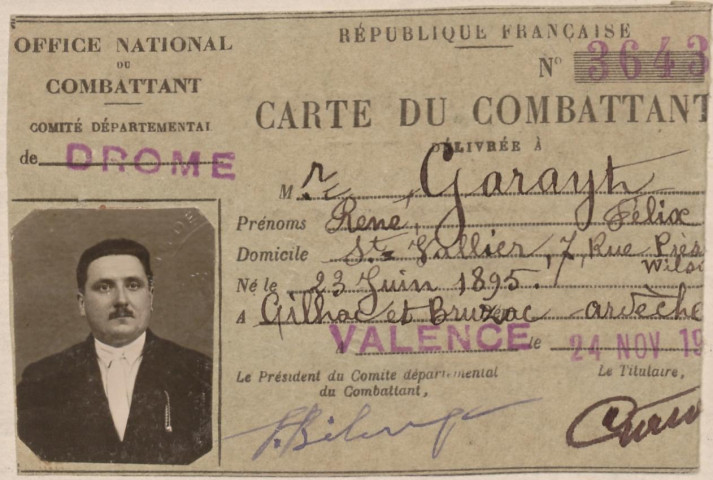 OFFICE NATIONAL
DU
COMBATTANT
COMITÉ DÉPARTEMENTAL
de DROME
RÉPUBLIQUE FRANÇAISE
N° 3643
CARTE DU COMBATTANT
DÉLIVRÉE À
Mr Garayt
Prénoms René, Félix
Domicile St Vallier, 7, Rue Prés
Wilso
Né le 23 Juin 1895.
A Gilhac et Bruzac ardèche
VALENCE le 24 NOV 19
Le Président du Comité départemental
du Combattant,
Le Titulaire,